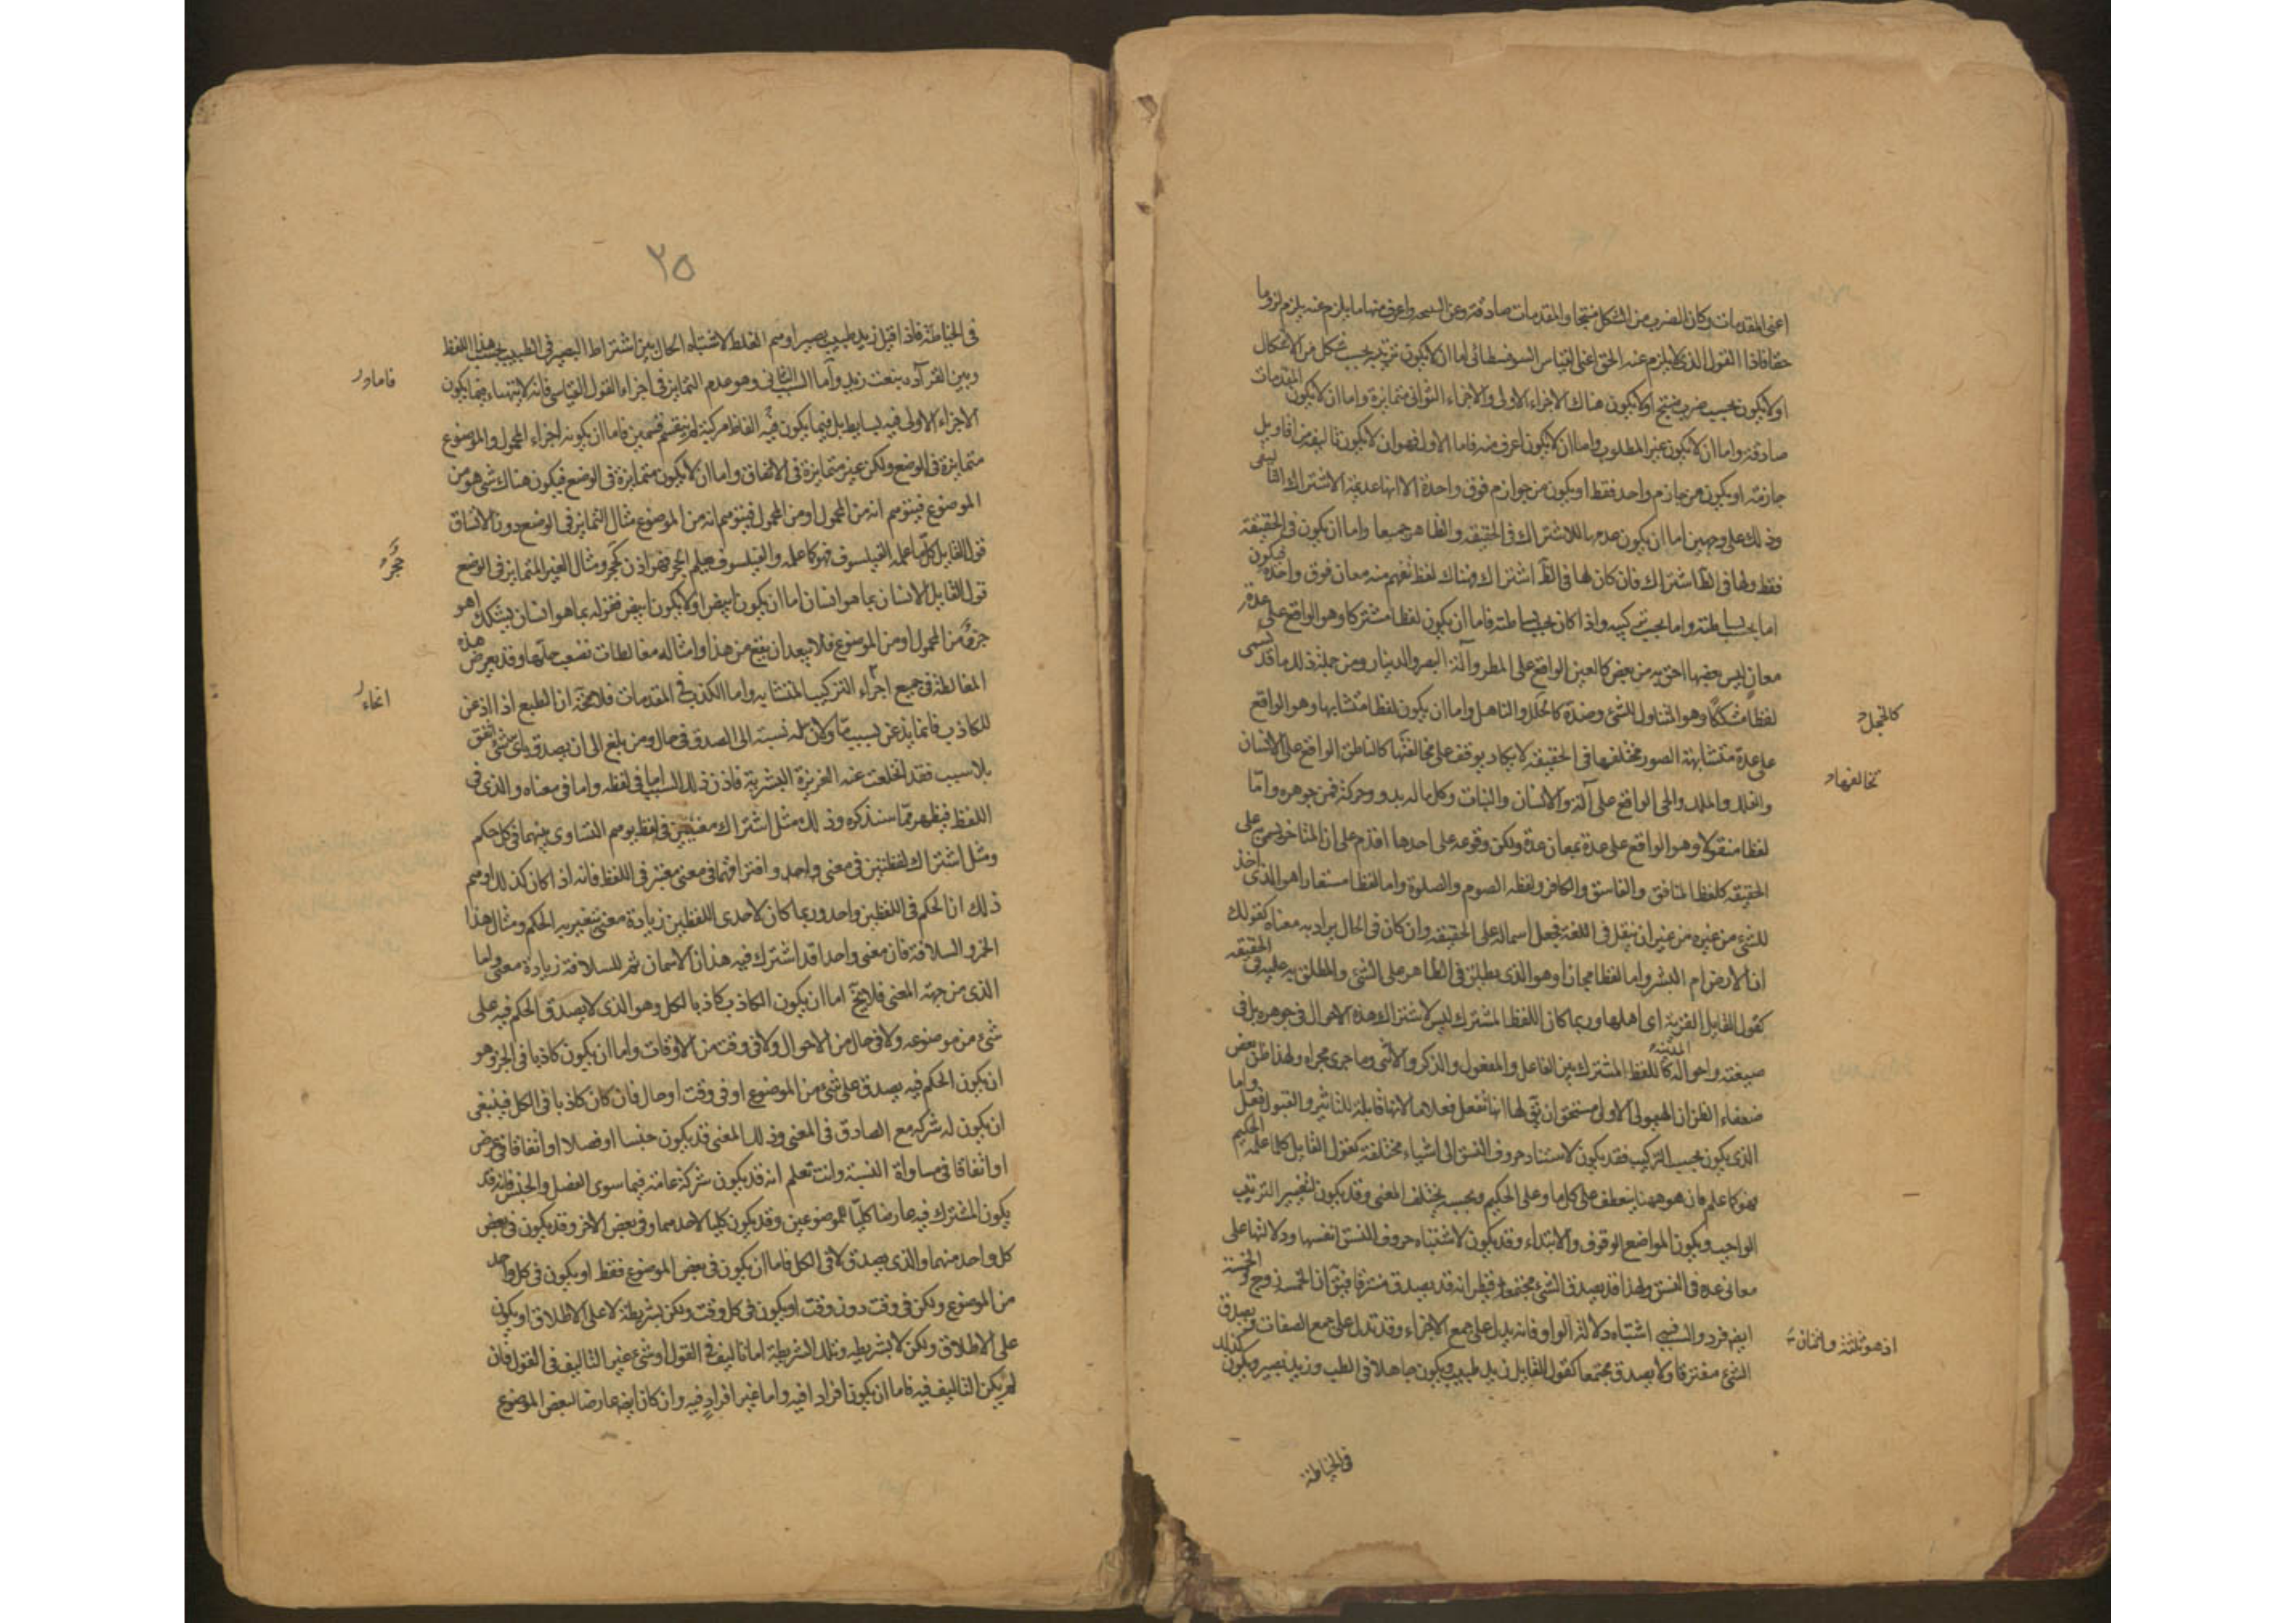 اعنى المقدمات وكان الضرب من الشكل منتجا والمقدمات صادقة وغير النتيجة واعرف منها ما يلزم عنه يلزم لزوما
حقا فاذا القول الذى لا يلزم عنه الحق اعنى القياس السوفسطائى اما ان لا يكون ترتيبه بحسب شكل من الاشكال
او لا يكون بحسب ضرب منتج او لا يكون هناك الاجزاء الاولى والاجزاء الثوانى متمايزة واما ان لا يكون المقدمات
صادقة واما ان لا يكون غير المطلوب واما ان لا يكون اعرف منه فاما الاول فهو ان لا يكون تاليفه من اقاويل
جازمة او يكون من جازم واحد فقط او يكون من جوازم فوق واحدة الا انها عديمة الاشتراك التاليفى
وذلك على وجهين اما ان يكون عدمها للاشتراك فى الحقيقة والظاهر جميعا واما ان يكون فى الحقيقة
فقط ولها فى الظ اشتراك فان كان لها فى الظ اشتراك فهناك لفظ تفهم منه معان فوق واحدة فيكون
اما بحسب بساطته واما بحسب تركيبه واذا كان بحسب بساطته فاما ان يكون لفظا مشتركا وهو الواقع على عدة
معان ليس بعضها احق به من بعض كالعين الواقع على المطر وآلة البصر والدينار ومن جملة ذلك ما قد يسمى
لفظا مشككا وهو المتناول للشئ وضده كالجلل والناهل واما ان يكون لفظا متشابها وهو الواقع
كالجلل
على عدة متشابهة الصور مختلفها فى الحقيقة لا يكاد يوقف على مخالفتها كالناطق الواقع على الانسان
تخالفها
والفلك والملك والحى الواقع على آله والانسان والنبات وكل ما له بدو وحركة فمن جوهره واما
لفظا منقولا وهو الواقع على عدة بمعان عدة ولكن وقوعه على احدها اقدم على ان المتاخر يسمى على
الحقيقة كلفظ المنافق والفاسق والكافر ولفظة الصوم والصلوة واما لفظا مستعارا هو الذى اخذ
للشئ من غيره من غير ان ينقل فى اللغة فجعل اسما له على الحقيقة وان كان فى الحال يراد به معناه كقولك
ان الارض ام البشر واما لفظا مجازا وهو الذى يطلق فى الظاهر على الشئ والمطلق به عليه فى الحقيقة
كقول القايل القرية اى اهلها وربما كان اللفظ المشترك ليس لاشتراك هذه الاحوال فى جوهره بل فى
صيغته واحواله كاللفظ المشترك بين الفاعل والمفعول والذكر والانثى وما جرى مجراه ولهذا ظن بعض
ضعفاء الظن ان الهيولى الاولى مستحق ان يق لها انها تفعل فعلا ما لانها قابلة للتاثير والقبول فعل واما
الذى يكون بحسب التركيب فقد يكون لاستناد حروف النسق الى اشياء مختلفة كقول القايل كلما علمه الحكيم
فهو كما علم فان هو ههنا ينعطف على كل ما وعلى الحكيم وبحسبه يختلف المعنى وقد يكون لتغيير الترتيب
الواجب ويكون المواضع الوقوف والابتداء وقد يكون لاشتباه حروف النسق انفسها ودلالتها على
معانى عدة فى النسق ولهذا قد يصدق الشئ مجتمعا فيظن انه قد يصدق مفترقا فيق ان الخمسة زوج والخمسة
ايض فرد والسبب اشتباه دلالة الواو فانه يدل على جمع الاجزاء وقد تدل على جمع الصفات وقد يصدق
اذ هو ثلثة واثنان
الشئ مفترقا ولا يصدق مجتمعا كقول القايل زيد طبيب ويكون جاهلا فى الطب وزيد بصير ويكون كذلك
فى الخياطة
٢٥
فى الخياطة فاذا قيل زيد طبيب بصير اوهم الغلط لاشتباه الحال بين اشتراط البصير فى الطبيب بحسب هذا اللفظ
وبين انفراده بنعت زيد واما السبب الثانى وهو عدم التمايز فى اجزاء القول القياسى فانه لا يتهياء فيما يكون
فاما
الاجزاء الاولى فيه بسايط بل فيما يكون فيه الفاظ مركبة ثم ينقسم قسمين فاما ان يكون اجزاء المحمول والموضوع
متمايزة فى الوضع ولكن غير متمايزة فى الاتساق واما ان لا يكون متمايزة فى الوضع فيكون هناك شئ هو من
الموضوع فيتوهم انه من المحمول او من المحمول فيتوهم انه من الموضوع مثال التمايز فى الوضع دون الاتساق
قول القايل كلما علمه الفيلسوف فهو كما علمه والفيلسوف يعلم الحجر فهو اذن كحجر ومثال الغير المتمايز فى الوضع
حجر
قول القايل الانسان بما هو انسان اما ان يكون ابيض او لا يكون ابيض فقوله بما هو انسان يشكك اهو
جزؤ من المحمول او من الموضوع فلا يبعد ان يقع من هذا وامثاله مغالطات تصعب حلها وقد يعرض هذه
المغالطة فى جميع اجزاء التركيب المتشابه واما الكذب فى المقدمات فلا محة ان الطبع اذا اذعن
انحاء
للكاذب فانما يذعن بسبب ما ولان له نسبة الى الصدق فى حال ومن بلغ الى ان يصدق باى شئ اتفق
بلا سبب فقد انخلعت عنه الغريزة البشرية فاذن ذلك السبب اما فى لفظه واما فى معناه والذى فى
اللفظ فيظهر مما سنذكره وذلك مثل اشتراك معنيين فى لفظ يوهم التساوى بينهما فى كل حكم
ومثل اشتراك لفظتين فى معنى واحد وافتراقهما فى معنى معتبر فى اللفظ فانه اذا كان كذلك اوهم
ذلك ان الحكم فى اللفظين واحد وربما كان لاحدى اللفظين زيادة معنى يتغير به الحكم ومثال هذا
الخمر والسلافة فان معنى واحدا قد اشترك فيه هذان الاسمان ثم للسلافة زيادة معنى واما
الذى من جهة المعنى فلا يخ اما ان يكون الكاذب كاذبا لكل وهو الذى لا يصدق الحكم فيه على
شئ من موضوعه ولا فى حال من الاحوال ولا فى وقت من الاوقات واما ان يكون كاذبا فى الجزء وهو
ان يكون الحكم فيه يصدق على شئ من الموضوع او فى وقت او حال فان كان كاذبا فى الكل فينبغى
ان يكون له شركة مع الصادق فى المعنى وذلك المعنى قد يكون جنسا او فصلا او اتفاقا فى عرض
او اتفاقا فى مساواة النسبة وانت تعلم انه قد يكون شركة عامة فيما سوى الفصل والجنس فانه قد
يكون المشترك فيه عارضا كليا للموضوعين وقد يكون كليا لاحدهما وفى بعض الاخر وقد يكون فى بعض
كل واحد منهما والذى يصدق لا فى الكل فاما ان يكون فى بعض الموضوع فقط او يكون فى كل واحد
من الموضوع ولكن فى وقت دون وقت او يكون فى كل وقت ولكن بشريطة لا على الاطلاق او يكون
على الاطلاق ولكن لا بشريطة وتلك الشريطة اما تاليف فى القول او شئ غير التاليف فى القول فان
لم يكن التاليف فيه فاما ان يكون افرادا فيه واما غير افراد فيه وان كان ايض عارضا لبعض الموضوع